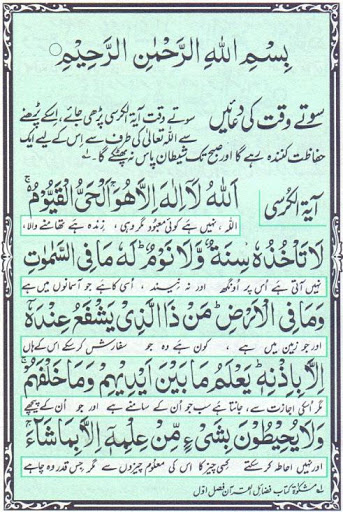 بِسْمِ اللهِ الرَّحْمٰنِ الرَّحِیْمِ
سوتے وقت کی دعائیں
سوتے وقت آیۃ الکرسی پڑھی جائے، اسکے پڑھنے
سے اللہ تعالیٰ کی طرف سے اس کے لیے ایک
حفاظت کنندہ رہے گا اور صبح تک شیطان پاس نہ پھٹکے گا۔
آیۃ الکرسی
اَللهُ لَاۤ اِلٰهَ اِلَّا هُوَ اَلْحَیُّ الْقَیُّوْمُ ۚ
اللہ، نہیں ہے کوئی معبود مگر وہی، زندہ ہے تھامنے والا،
لَا تَاْخُذُهٗ سِنَةٌ وَّلَا نَوْمٌ ؕ لَهٗ مَا فِی السَّمٰوٰتِ
نہیں آتی ہے اُس پر اُونگھ اور نہ نیند، اُسی کا ہے جو آسمانوں میں ہے
وَمَا فِی الْاَرْضِ ؕ مَنْ ذَا الَّذِیْ یَشْفَعُ عِنْدَهٗۤ
اور جو زمین میں ہے، کون ہے وہ جو سفارش کر سکے اس کے ہاں
اِلَّا بِاِذْنِهٖ ؕ یَعْلَمُ مَا بَیْنَ اَیْدِیْهِمْ وَمَا خَلْفَهُمْ ۚ
مگر اُسکی اجازت سے، جانتا ہے سب جو اُن کے سامنے ہے اور جو اُن کے پیچھے
وَلَا یُحِیْطُوْنَ بِشَیْءٍ مِّنْ عِلْمِهٖۤ اِلَّا بِمَا شَآءَ ۚ
اور نہیں احاطہ کر سکتے کسی چیز کا اس کی معلوم چیزوں سے مگر جس قدر وہ چاہے
لہ مشکوٰۃ کتاب فضائل القرآن فصل اوّل